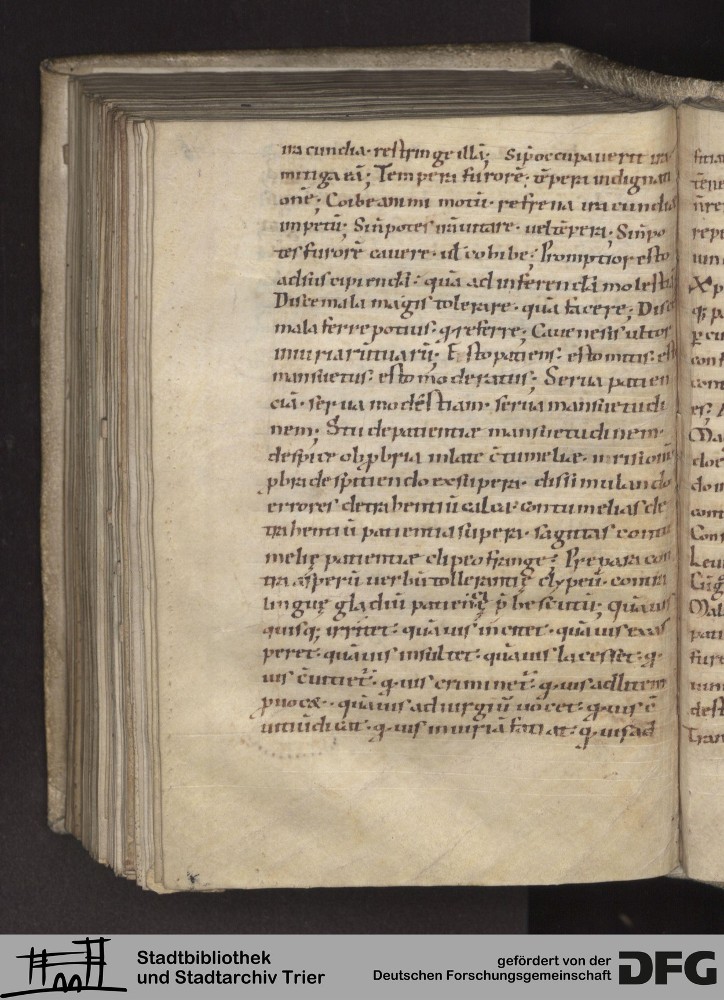 iracundia· restringe illā; Sip̄occupauerit ira
mitiga eā; Tempera furorē· tēpera indignati
onē; Coibe animi motū· refrena iracundię
impetū; Sin̄potes irā uitare· uel tēpera; Sin̄po
tes furorē cauere· ul̄ cohibe; Promptior esto
ad suscipiendā· quā ad inferendā molestiā
Disce mala magis tolerare· quā facere; Disce
mala ferre potius· q̄ referre; Caue ne sis ultor
iniuriarū tuarū; Esto patiens· esto mitis· esto
mansuetus· esto moderatus; Serua patien
ciā· serua modestiam· serua mansuetudi
nem; Stude patientiæ mansuetudinem·
despice obp̱bria inlatę c̄tumeliæ· irrisionū
p̱bra despitiendo exsupera· dissimulando
errores detrahentiū calca· contumelias de
trahentiū patientia supera· sagittas contu
melię patientiæ clipeo frange· Prepara con
tra asperū uerbū tollerantię clypeū· contra
linguę gladiū patientię p̄be scutū; quāuis
quisq; irritet· quāuis incitet· quāuis exas
peret· quāuis insultet· quāuis lacesset· q̄
uis c̄uitiet᷑· q̄uis criminet᷑· q̄uis ad litem
p̱uocæ· quāuis ad iurgiū uocet· q̄uis c̄
uitiū dicat· q̄uis iniuriā faciat· q̄uis ad
Stadtbibliothek
und Stadtarchiv Trier
gefördert von der
Deutschen Forschungsgemeinschaft
DFG